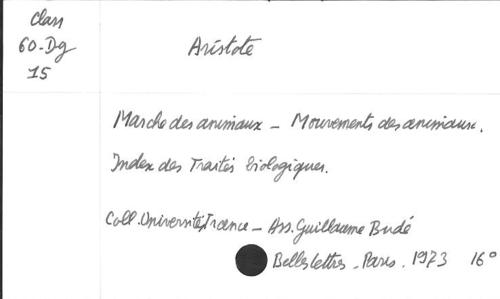 Class
60-Dg
15
Aristote
Marche des animaux - Mouvements des animaux.
Index des Traités biologiques.
Coll. Université France - Ass. Guillaume Budé
Belles lettres - Paris. 1973 16°